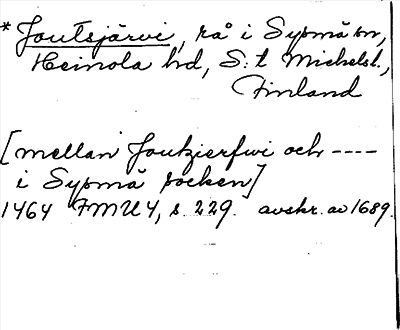 * Joutsjärvi, rå i Sysmä sn,
Heinola hd, S:t Michels l.,
Finland
[mellan Joukzierfwi och ----
i Sysmä socken]
1464 FMU 4, s. 229. avskr. av 1689.